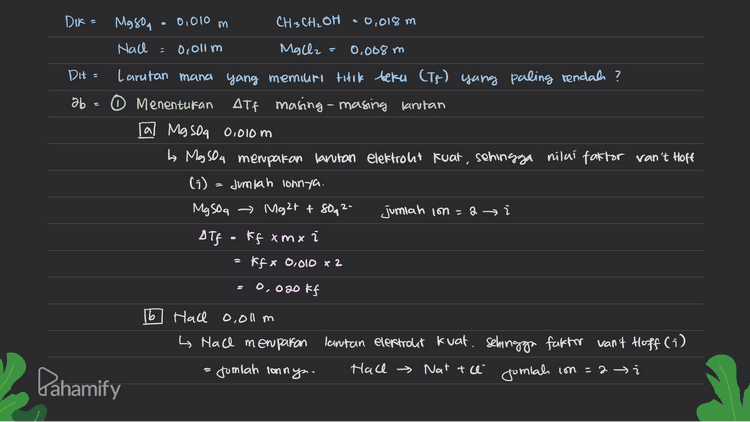 Dik = MgSO4 = 0,010 m CH3CH2OH = 0,018 m
NaCl = 0,011 m MgCl2 = 0,008 m
Dit = Larutan mana yang memiliki titik beku (Tf) yang paling rendah ?
Jb = ① Menentukan ΔTf masing - masing larutan
a MgSO4 0,010 m
↳ MgSO4 merupakan larutan elektrolit kuat, sehingga nilai faktor van't Hoff
(i) = Jumlah ionnya.
MgSO4 → Mg2+ + SO4 2- jumlah ion = 2 → i
ΔTf = Kf x m x i
= Kf x 0,010 x 2
= 0,020 Kf
b NaCl 0,011 m
↳ NaCl merupakan larutan elektrolit kuat. sehingga faktor van't Hoff (i)
= jumlah ionnya. NaCl → Na+ + Cl- jumlah ion = 2 → i
Pahamify